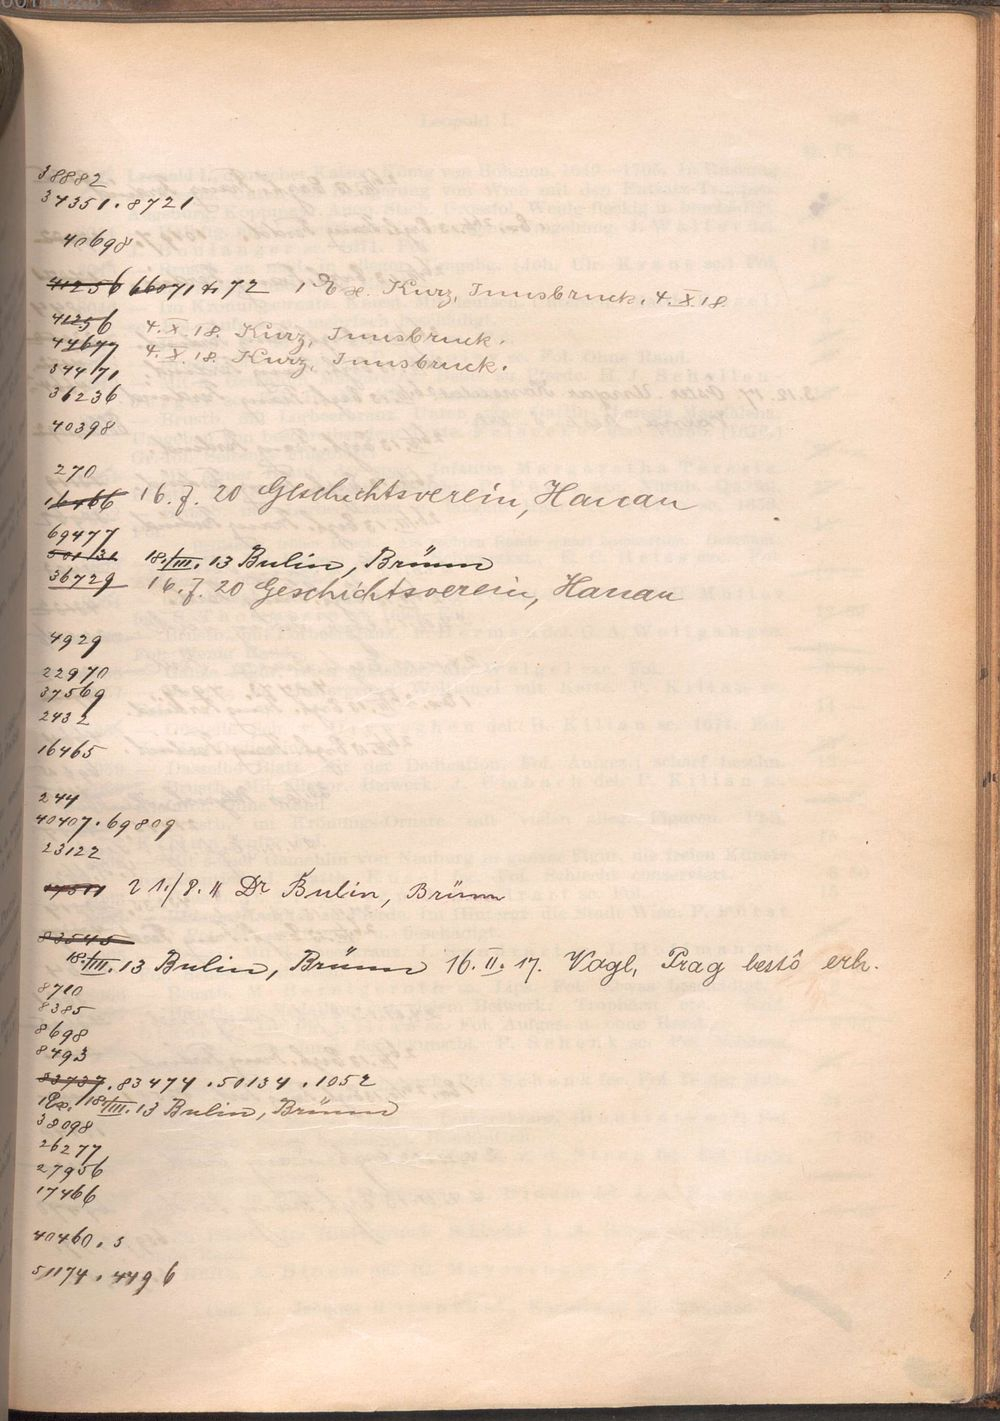 38882
34351. 8721
40698
41256 66071 + 72 1 Ex. Kurz, Innsbruck. 4. X. 18.
41256 4. X. 18. Kurz, Innsbruck.
44647 4. X. 18. Kurz, Innsbruck.
34471
36236
40398
270
16466 16. 7. 20 Geschichtsverein, Hanau
69477
50131 18./III. 13 Bulin, Brünn
36729 16. 7. 20 Geschichtsverein, Hanau
4929
22970
37569
2432
16465
244
40407. 69809
23122
17511 21./8. 11 Dr Bulin, Brünn
83545
18./III. 13 Bulin, Brünn 16. II. 17. Vogl, Prag
8710
8385
8698
8493
83737. 83474. 50134. 1052
1 Ex. 18./III. 13 Bulin, Brünn
38098
26277
27956
17466
40460. s
51174. 4496